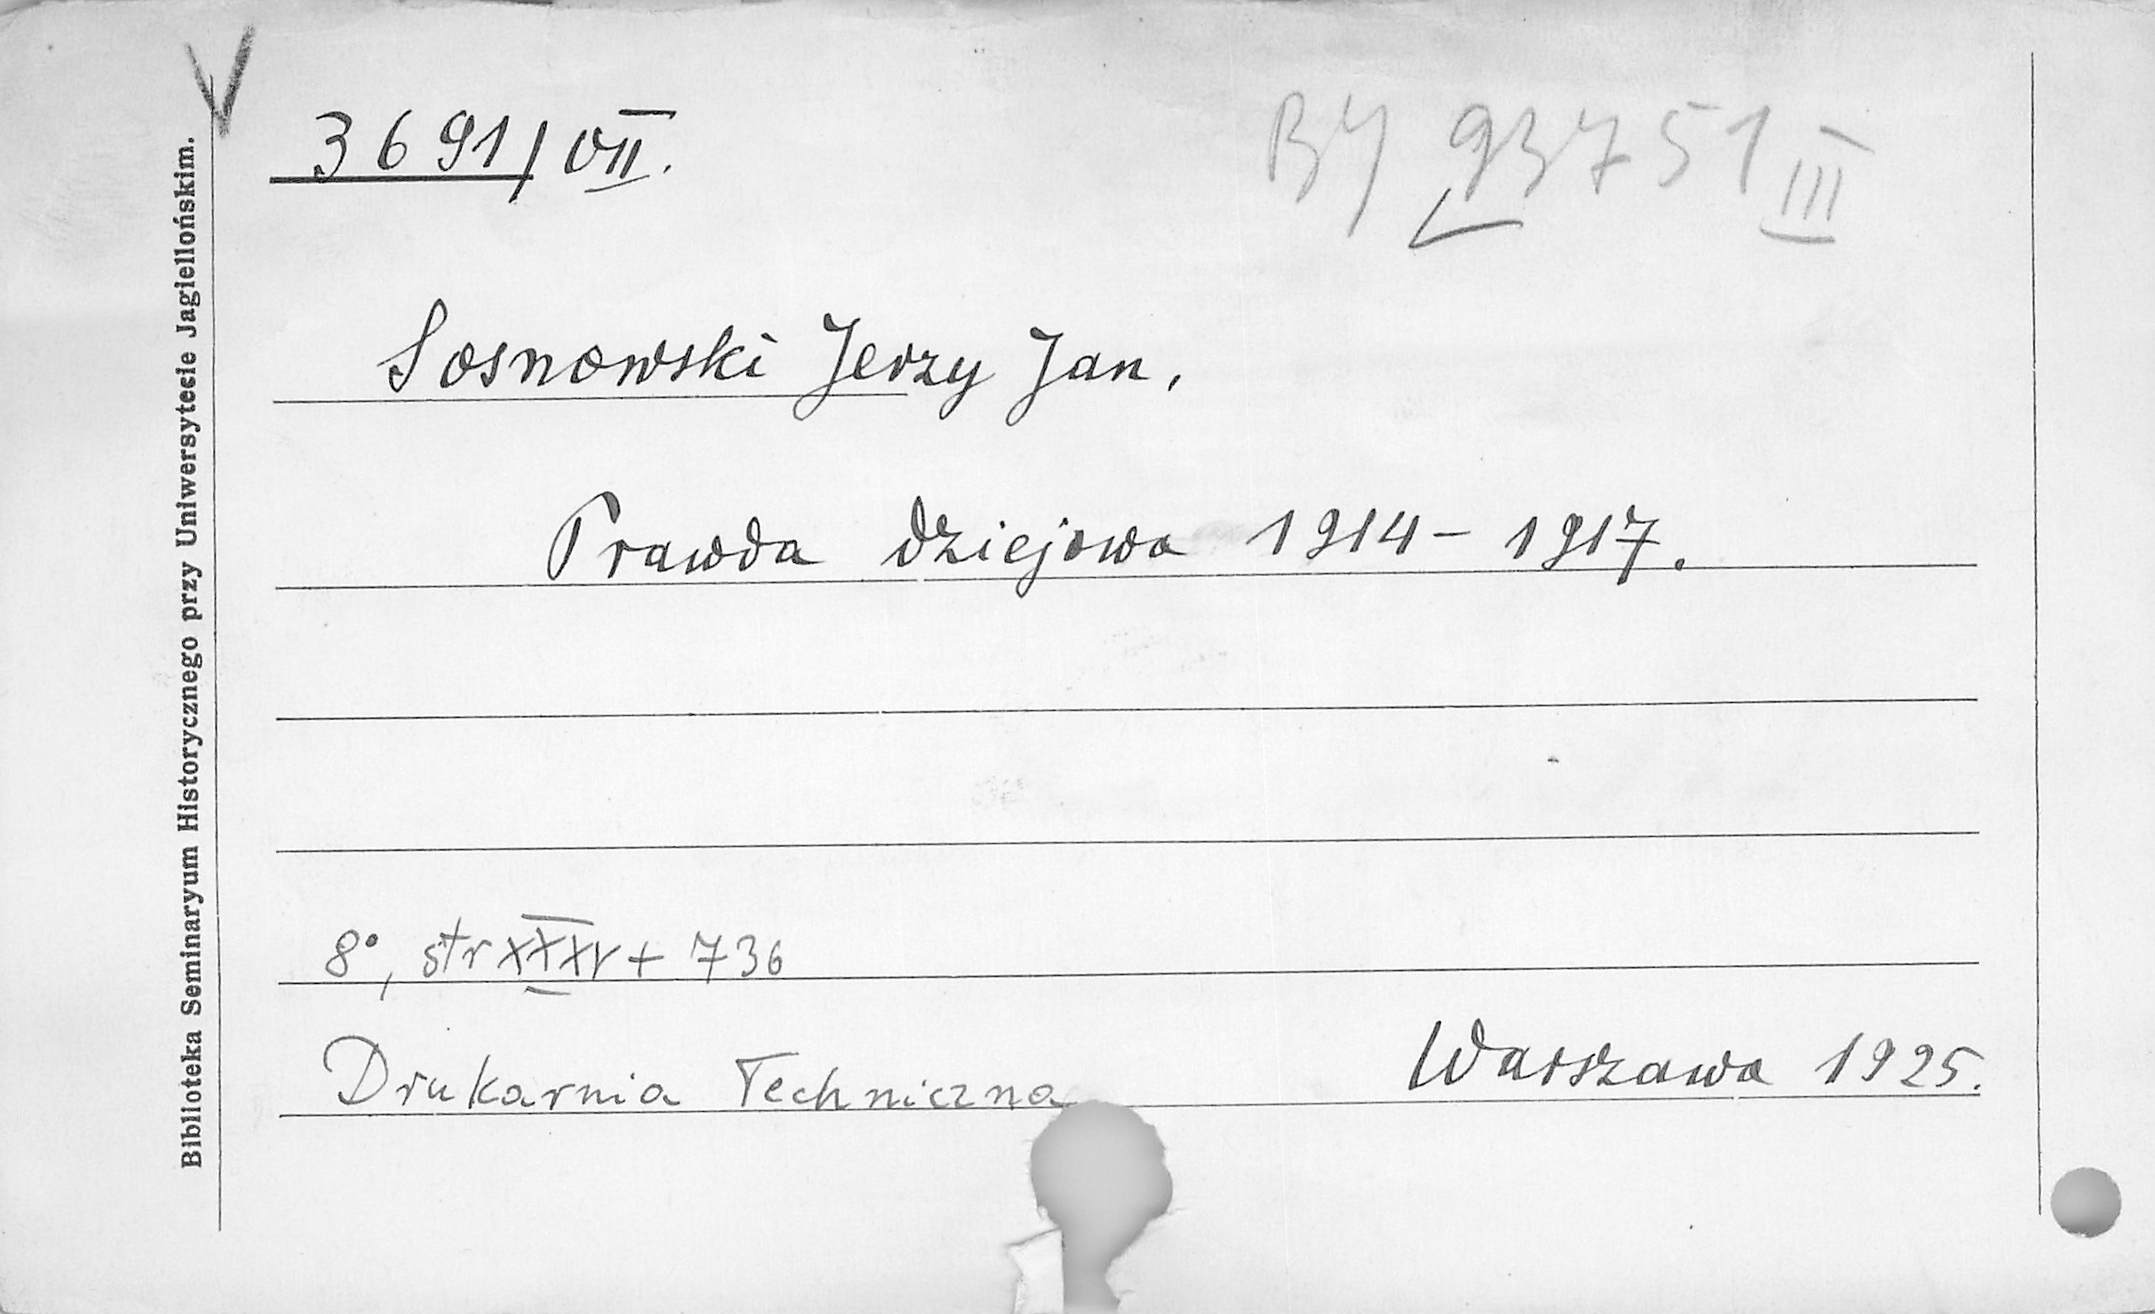 3691/VII.
BJ 93751 III
Sosnowski Jerzy Jan.
Prawda dziejowa 1914-1917.
8°, str XXXV + 736
Drukarnia Techniczna
Warszawa 1925.
Biblioteka Seminaryum Historycznego przy Uniwersytecie Jagiellońskim.